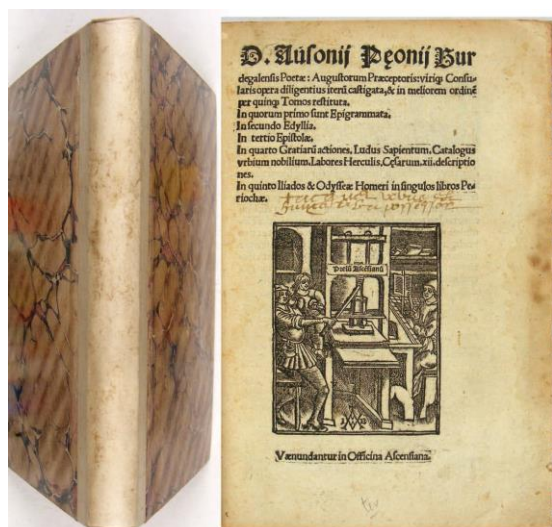 D. Ausonij Pęonij Bur
degalensis Poetæ: Augustorum Præceptoris: viriq; Consu-
laris opera diligentius iterū castigata, & in meliorem ordinē
per quinq; Tomos restituta.
In quorum primo sunt Epigrammata.
In secundo Edyllia.
In tertio Epistolæ.
In quarto Gratiarū actiones, Ludus Sapientum, Catalogus
vrbium nobilium, Labores Herculis, Cęsarum .xii. descriptio
nes.
In quinto Iliados & Odysseæ Homeri in singulos libros Pe-
riochæ.
Prelū Ascēsianū
Vænundantur in Officina Ascensiana.